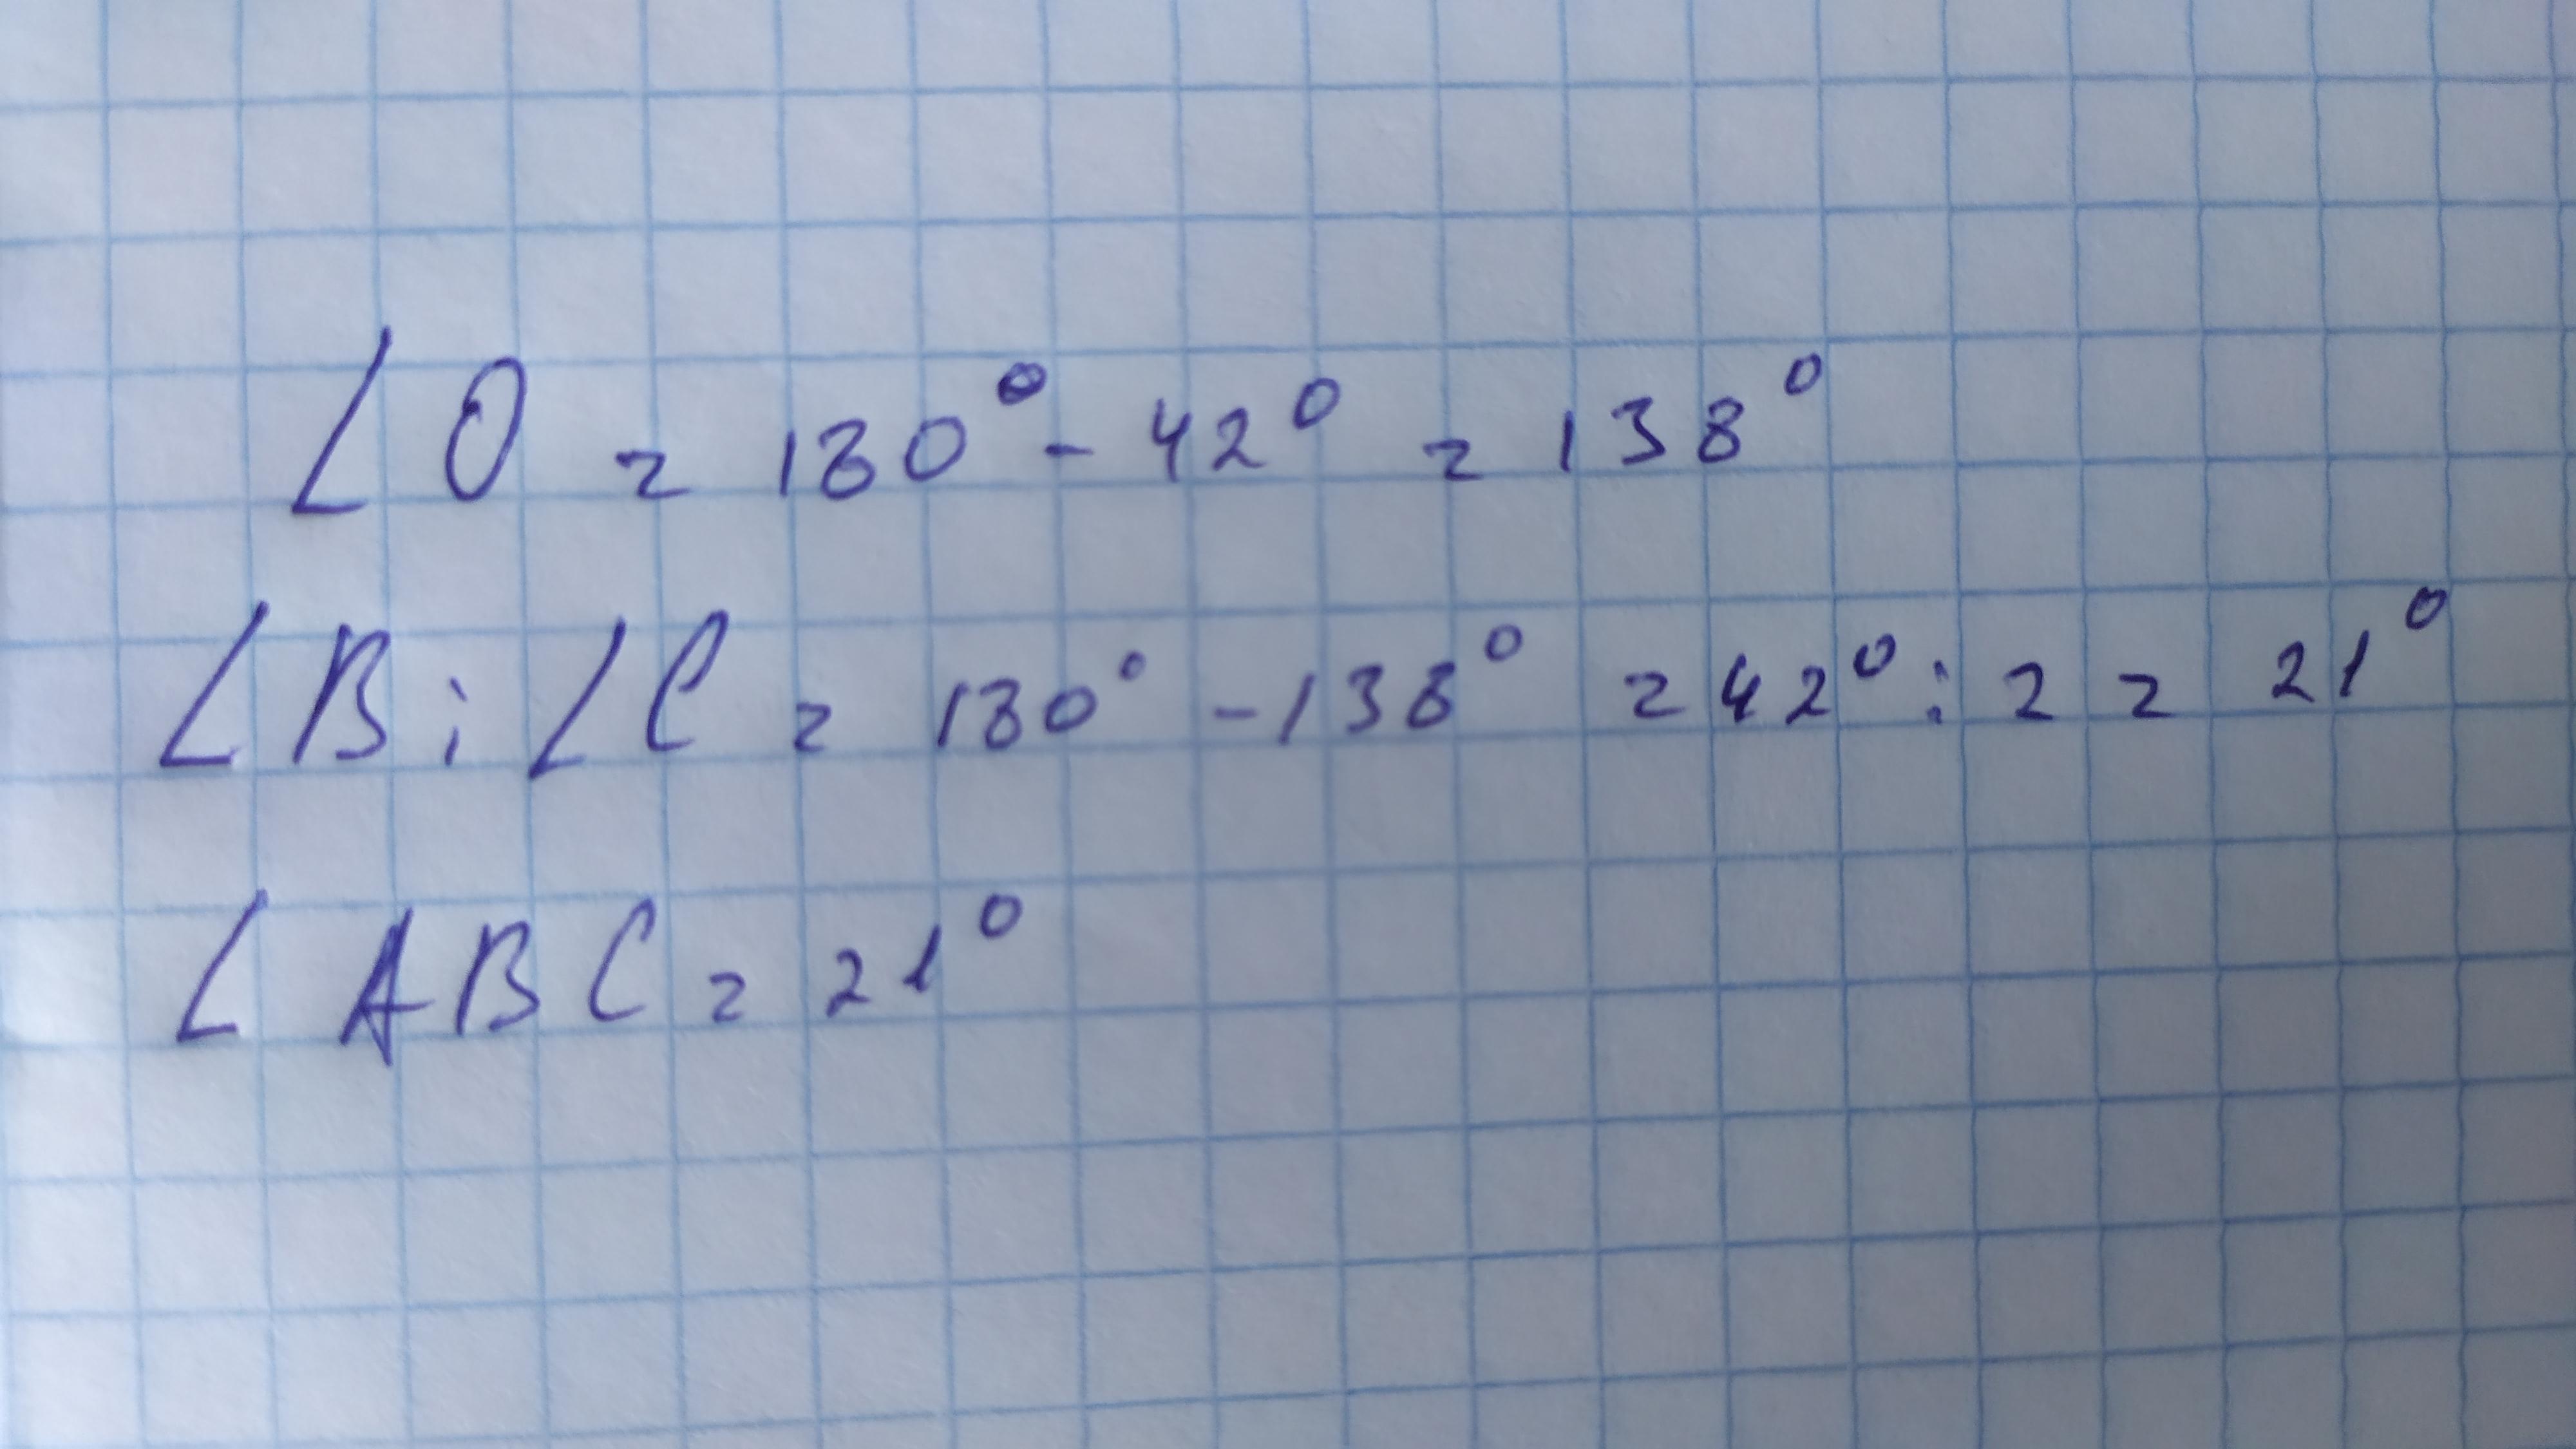 ∠O = 180° - 42° = 138°
∠B i ∠C = 180° - 138° = 42° : 2 = 21°
∠ABC = 21°